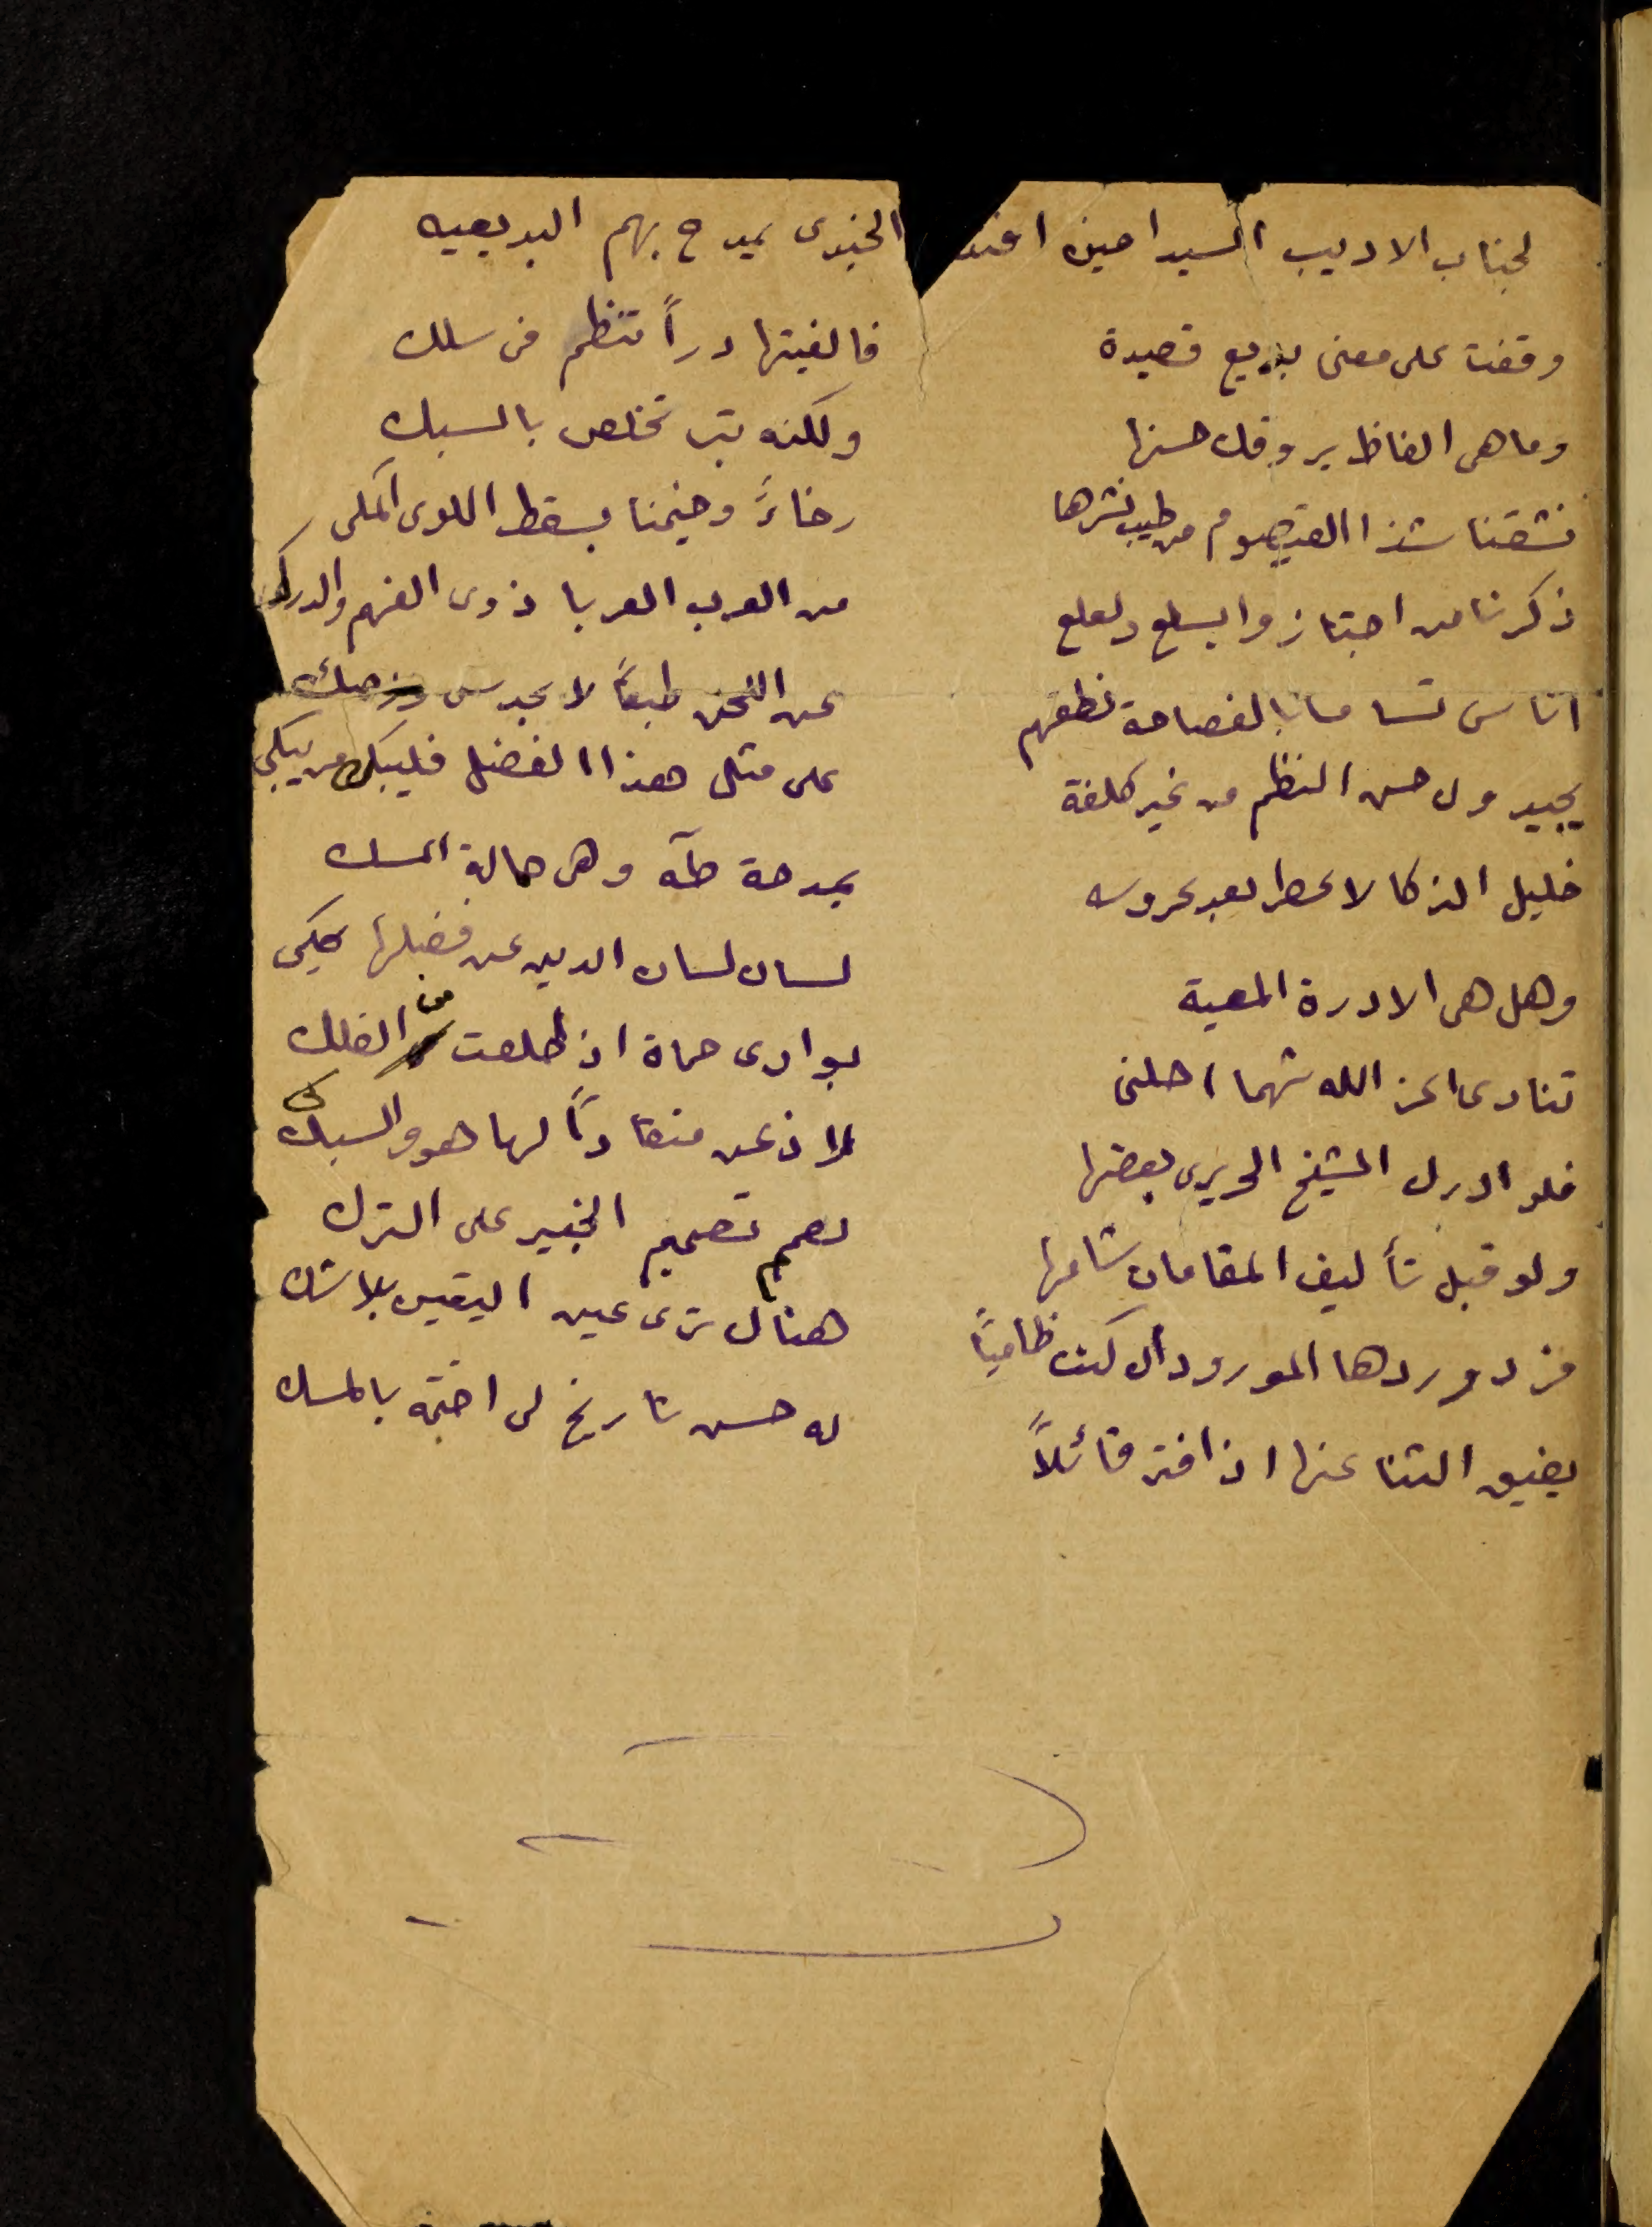 لجناب الاديب السيد امين افند الجندى يمدح بهم البديعيه
وقفت على معنى بديع قصيدة فالفيتها دراً تنظم فى سلك
وما هى الفاظ يروقك حسنها ولكنه تبر تخلص بالسبك
نشقنا شذا القيصوم من طيب نشرها رخاءً وخيمنا بسقط اللوى المكى
ذكرنا من اجتازوا بسلع ولعلع من العرب العربا ذوى الفهم والدرك
اناس تسامى بالفصاحة نطقهم عن اللحن طبعاً لا بحدس
يجيدون حسن النظم من غير كلفة على مثل هذا الفضل فليبك من يبكى
خليل الذكا لا عطر بعد عروسه بمدحة طه وهى المسك
وهل هى الا درة المعية لسان لسان الدين عن فضلها يحكى
تنادى اعز الله شهما احلنى بوادى حماة اذ طلعت من الفلك
فلو ادرك الشيخ الحريرى بعضها لاذعن منقاداً لها هو والسبكى
ولو قبل تأليف المقامات شامها لصمم تصميم الخبير على الترك
فزد وردها المورود ان كنت ظامياً هناك ترى عين اليقين بلا شك
يضيق الثنا عنها اذا فتر قائلاً له حسن تاريخ لى اختمه بالمسك